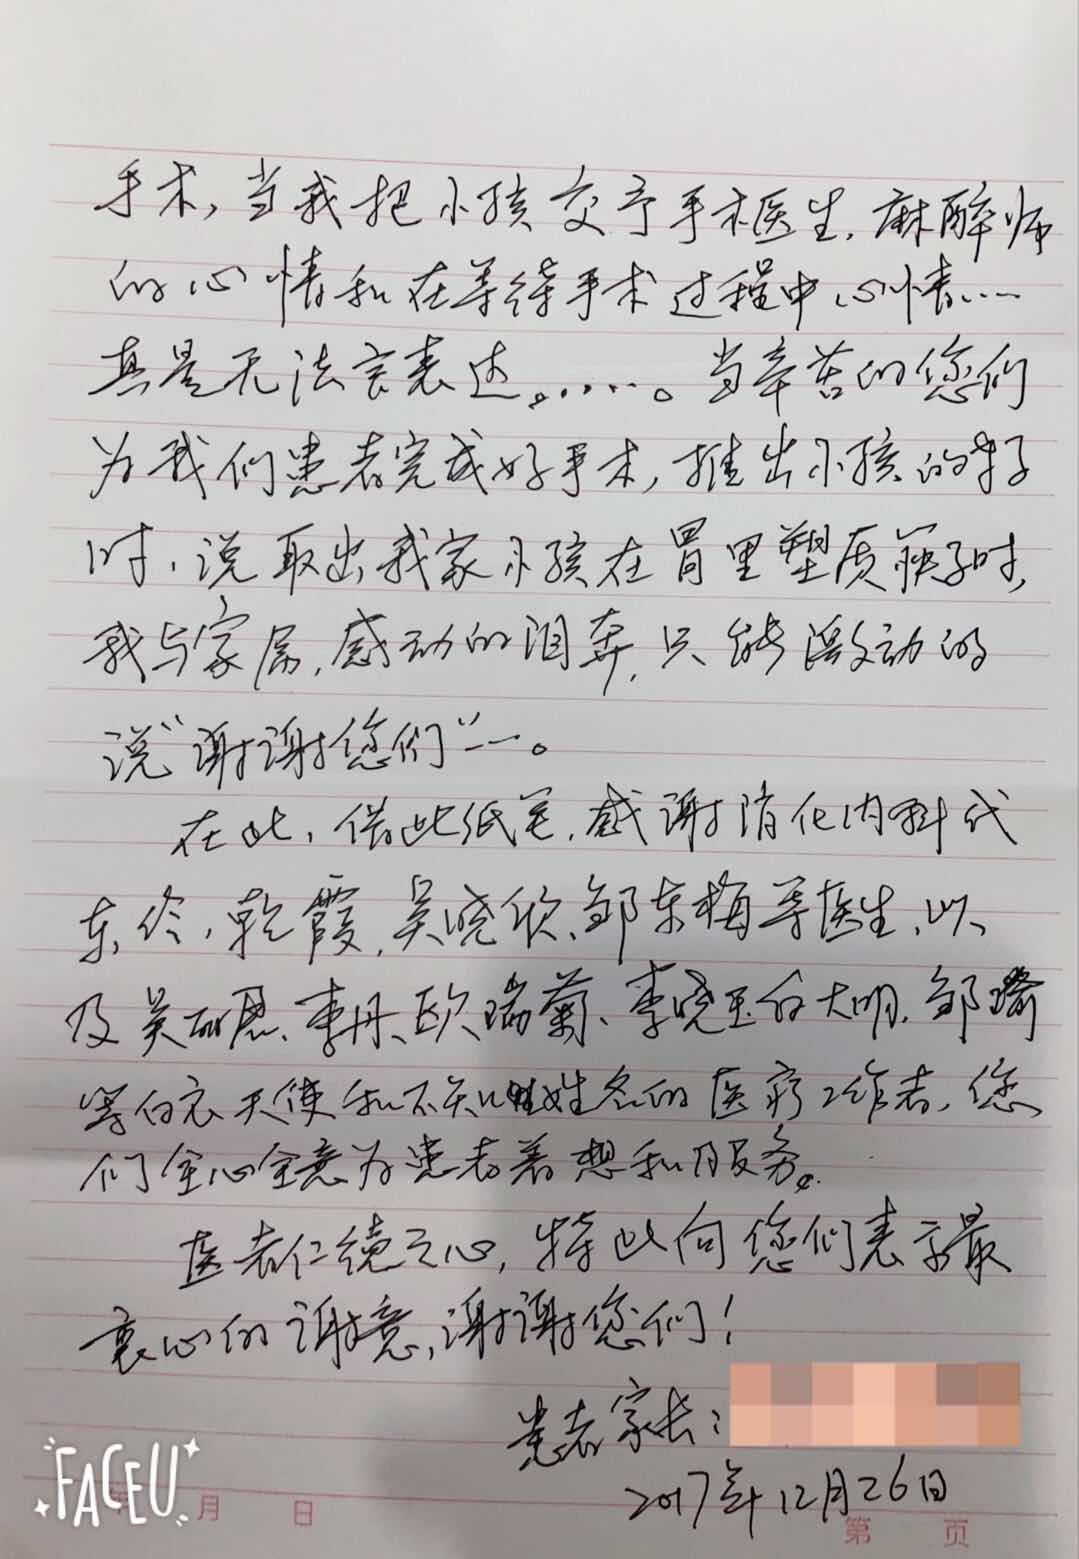 手术，当我把小孩交予手术医生，麻醉师
的心情和在等待手术过程中心情……
真是无法言表达。……。当辛苦的您们
为我们患者完成好手术，推出小孩的车子
时，说取出我家小孩在胃里塑质筷子时，
我与家属，感动的泪奔，只能激动的
说“谢谢您们”——。
在此，借此纸笔，感谢消化内科代
东伶，乾霞，吴晓欣、邹东梅等医生，以
及吴、李丹、欧瑞菊、李晓玉白大明，邹瑜
等白衣天使和不知姓名的医疗工作者，您
们全心全意为患者着想和服务。
医者仁德之心，特此向您们表示最
衷心的谢意，谢谢您们！
患者家长：
2017年12月26日
年 月 日
第 页
FACEU